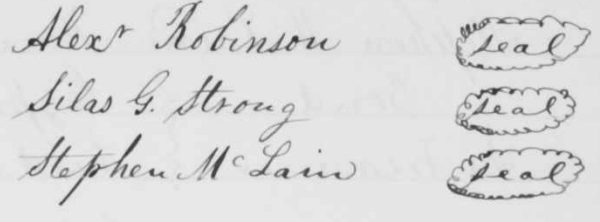 Alexr Robinson seal
Silas G. Strong seal
Stephen Mc Lain seal